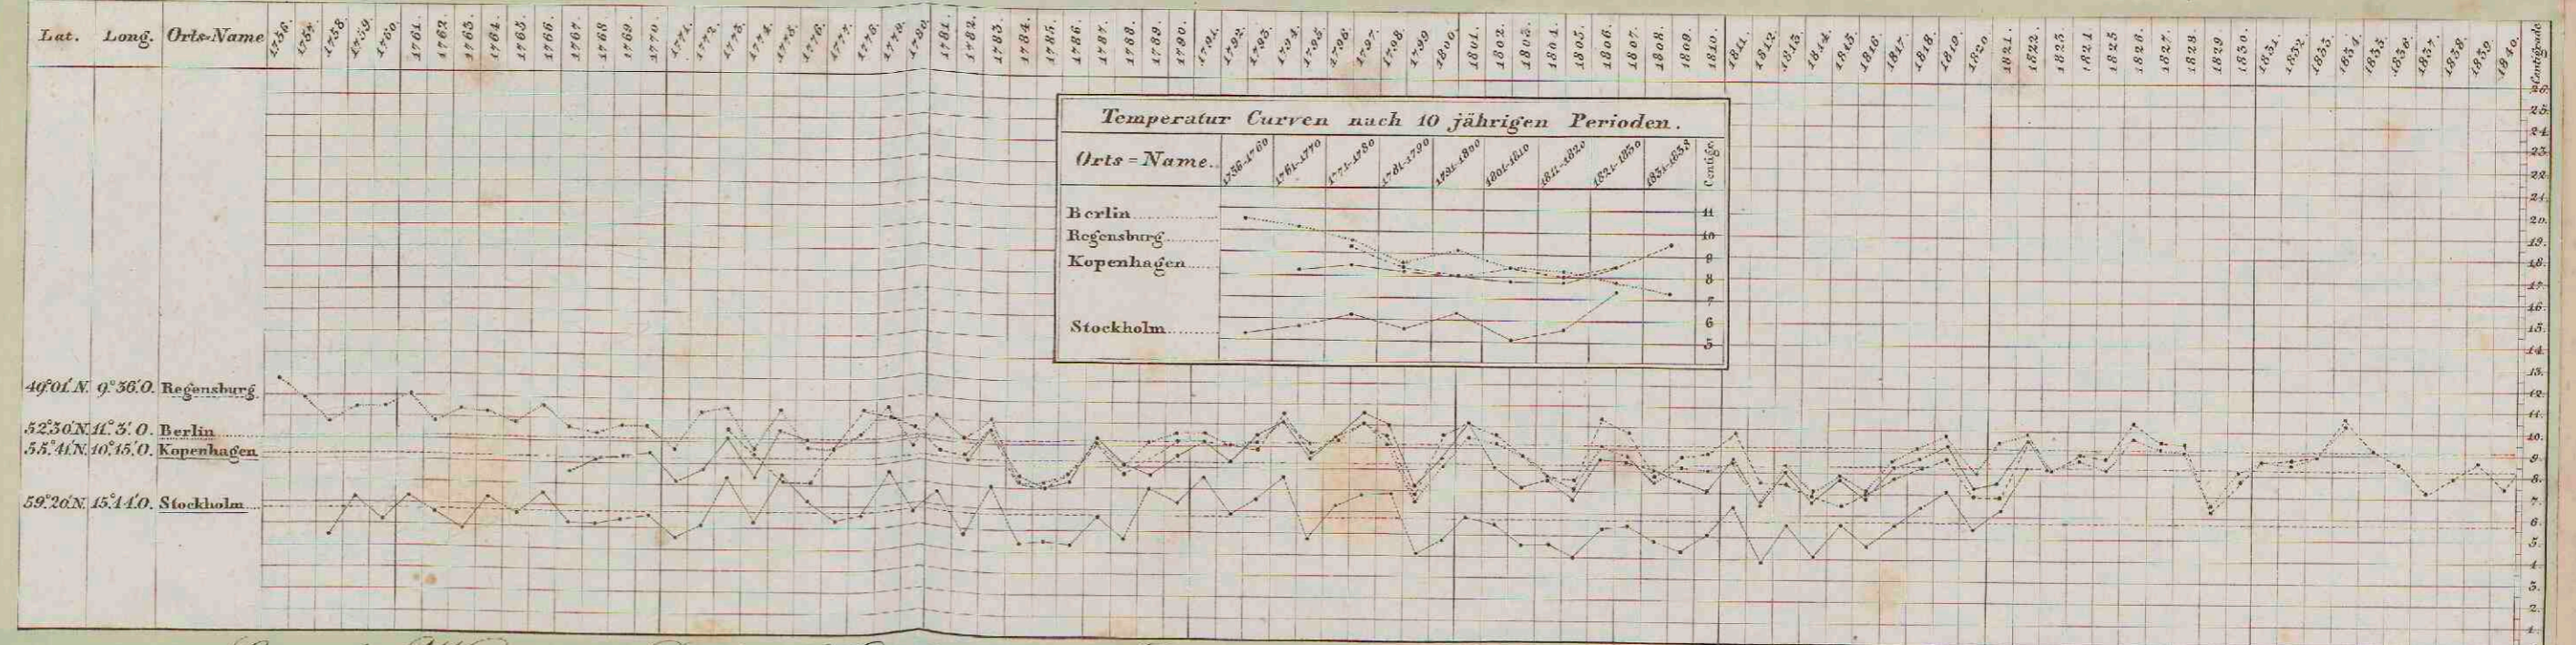 Lat. Long. Orts-Name 1756. 1757. 1758. 1759. 1760. 1761. 1762. 1763. 1764. 1765. 1766. 1767. 1768. 1769. 1770. 1771. 1772. 1773. 1774. 1775. 1776. 1777. 1778. 1779. 1780. 1781. 1782. 1783. 1784. 1785. 1786. 1787. 1788. 1789. 1790. 1791. 1792. 1793. 1794. 1795. 1796. 1797. 1798. 1799 1800. 1801. 1802. 1803. 1804. 1805. 1806. 1807. 1808. 1809. 1810. 1811. 1812. 1813. 1814. 1815. 1816. 1817. 1818. 1819. 1820. 1821. 1822. 1823. 1824. 1825 1826. 1827. 1828. 1829. 1830. 1831. 1832. 1833. 1834. 1835. 1836. 1837. 1838. 1839. 1840. Centigrade
Temperatur Curven nach 10 jährigen Perioden.
Orts=Name. 1756-1760 1761-1770 1771-1780 1781-1790 1791-1800 1801-1810 1811-1820 1821-1830 1831-1838 Centigr.
Berlin
Regensburg
Kopenhagen
Stockholm
11
10
9
8
7
6
5
49°01'N. 9°36'O. Regensburg
52°30'N. 11°3'O. Berlin
55°41'N. 10°15'O. Kopenhagen
59°20'N. 15°44'O. Stockholm
26.
25.
24.
23.
22.
21.
20.
19.
18.
17.
16.
15.
14.
13.
12.
11.
10.
9.
8.
7.
6.
5.
4.
3.
2.
1.